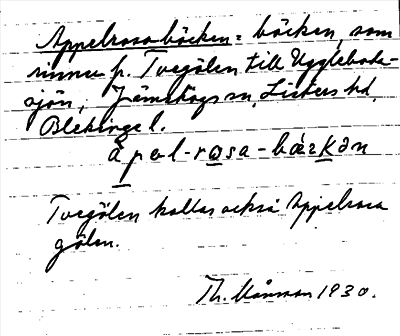 Appelrosabäcken = bäcken, som
rinner fr. Tvegölen till Ugglebode-
sjön, Jämshögs sn, Listers hd,
Blekinge l.
a̱pəl-ro̱sa-bæ̀ḵən
Tvegölen kallas också Appelrosa
gölen.
Th. Månsson 1930.